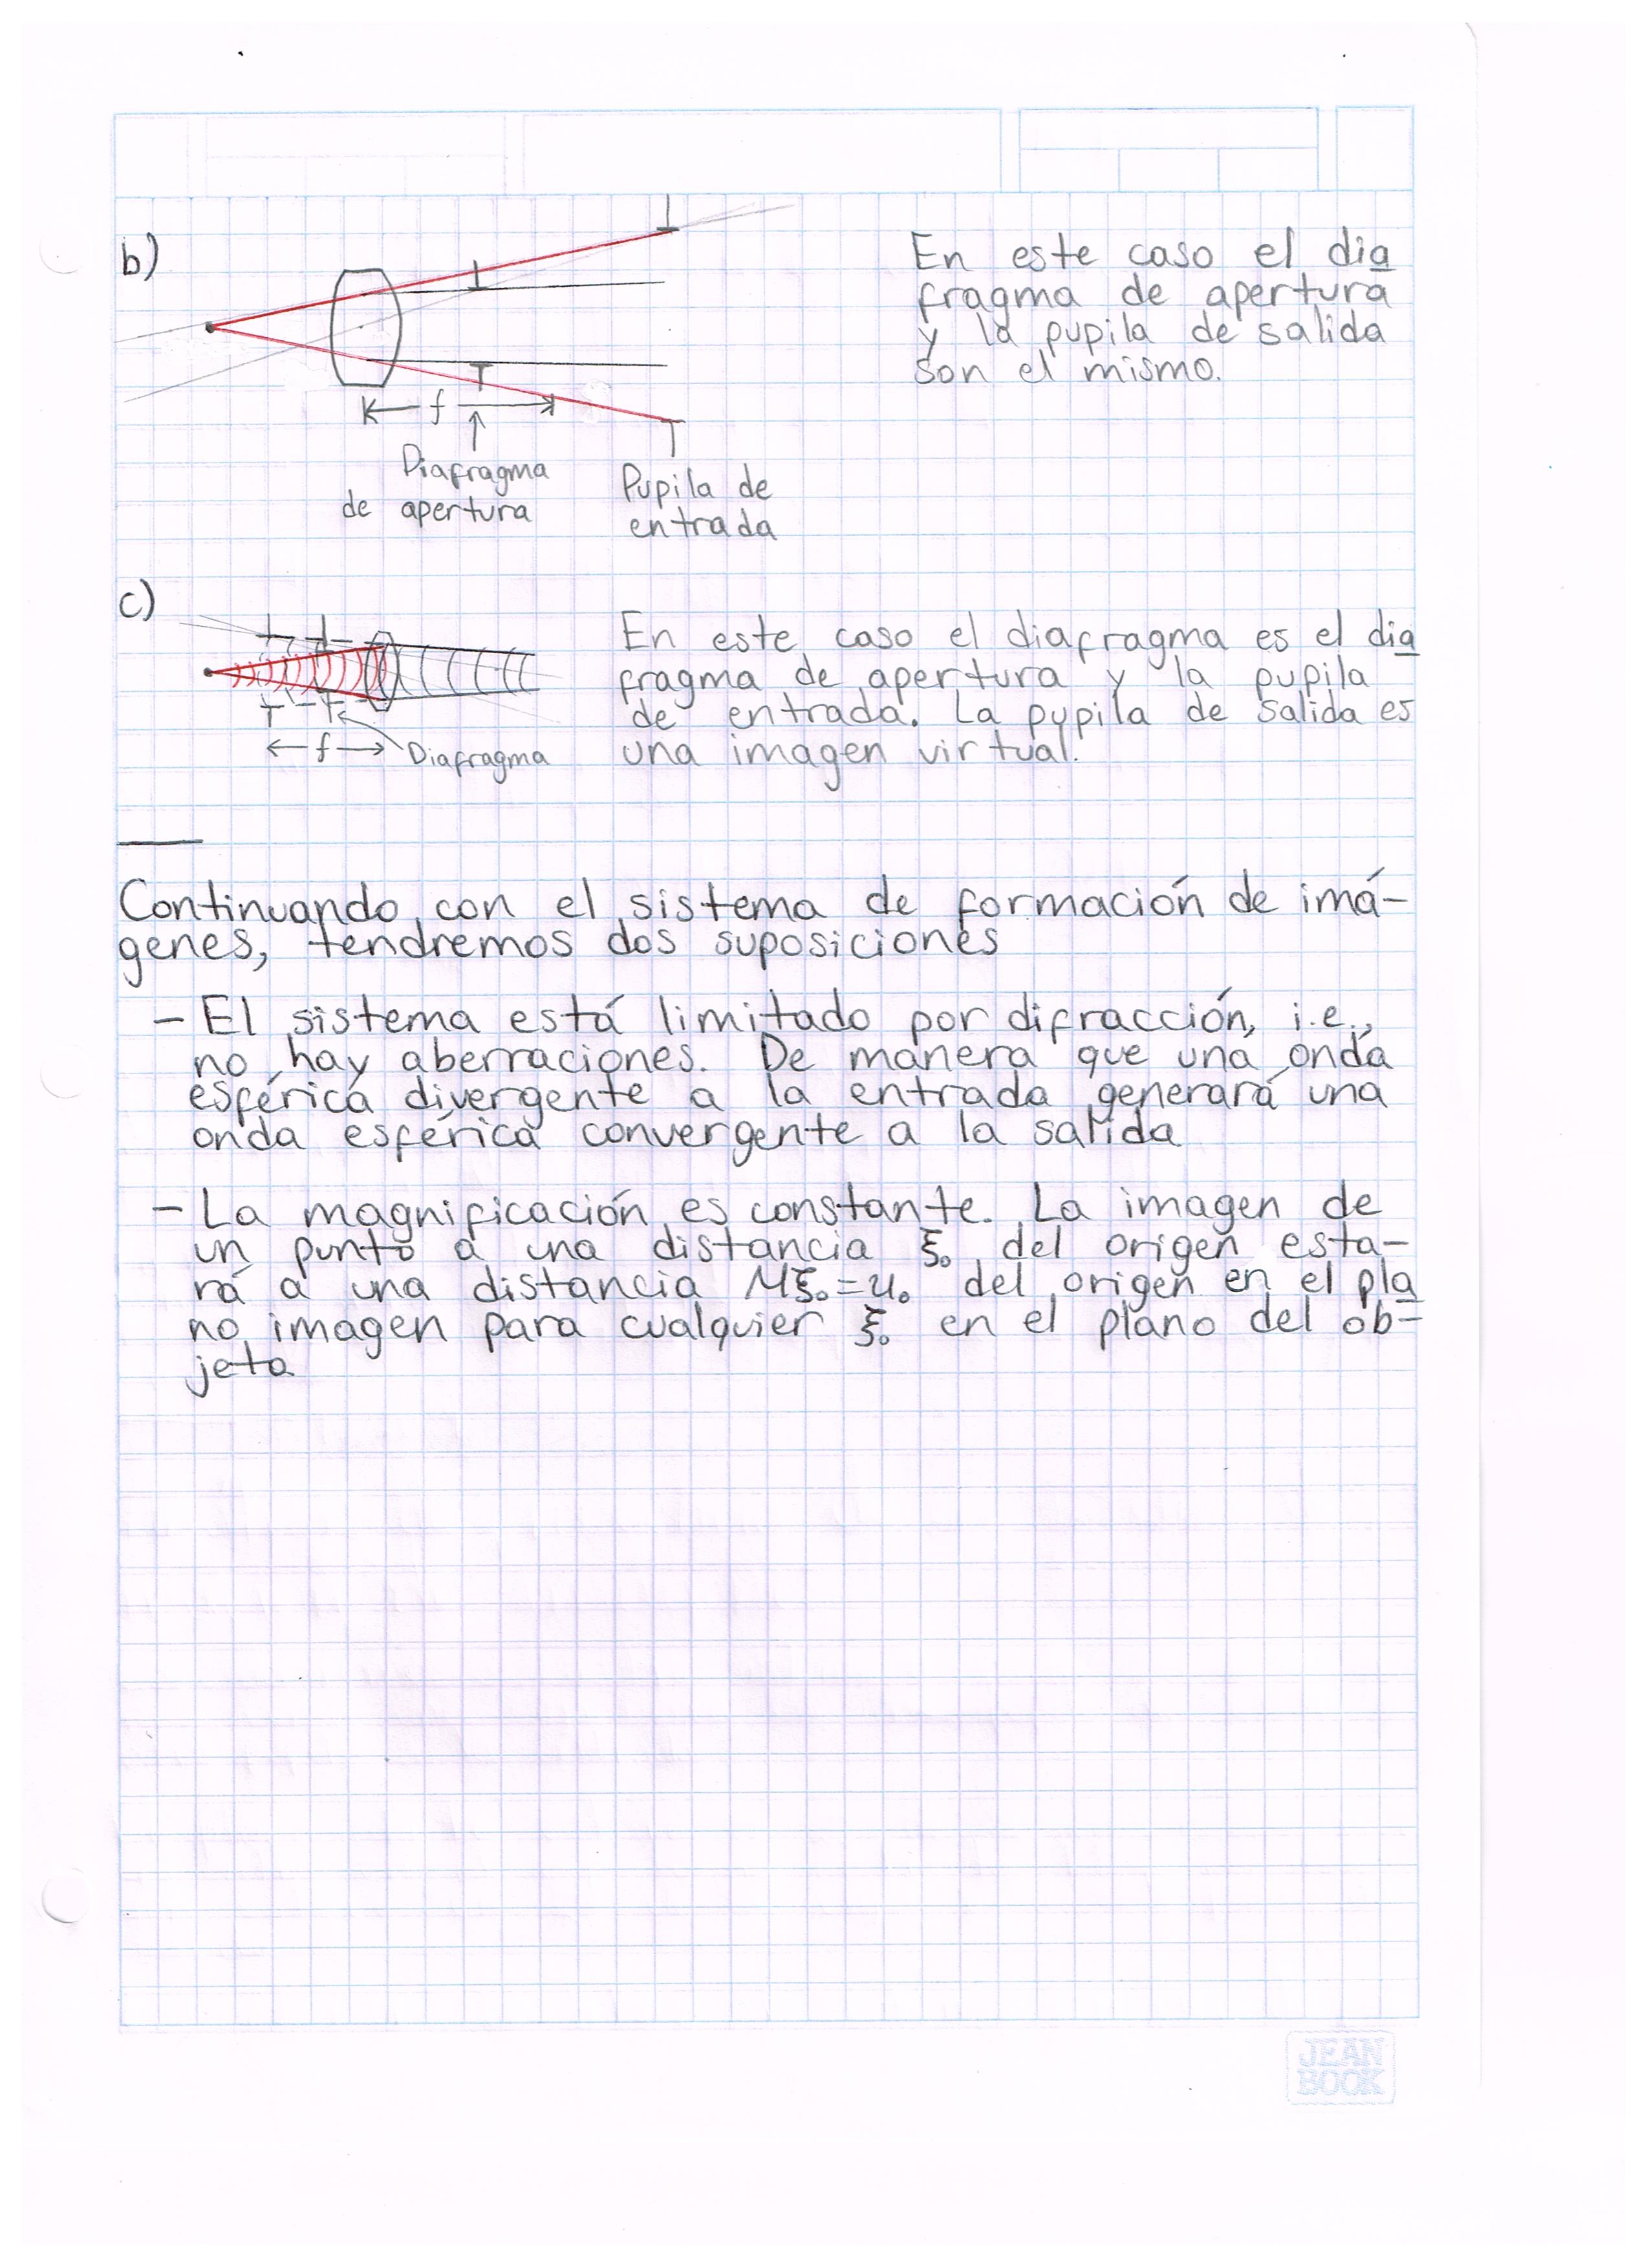 b)
En este caso el dia
fragma de apertura
y la pupila de salida
son el mismo.
f
Diafragma
de apertura
Pupila de
entrada
c)
En este caso el diafragma es el dia
fragma de apertura y la pupila
de entrada. La pupila de salida es
una imagen virtual.
f
Diafragma
Continuando con el sistema de formación de imá-
genes, tendremos dos suposiciones
- El sistema está limitado por difracción, i.e.,
no hay aberraciones. De manera que una onda
esférica divergente a la entrada generará una
onda esférica convergente a la salida
- La magnificación es constante. La imagen de
un punto a una distancia ξ₀ del origen esta-
rá a una distancia Mξ₀=u₀ del origen en el pla
no imagen para cualquier ξ₀ en el plano del ob-
jeto
JEAN
BOOK